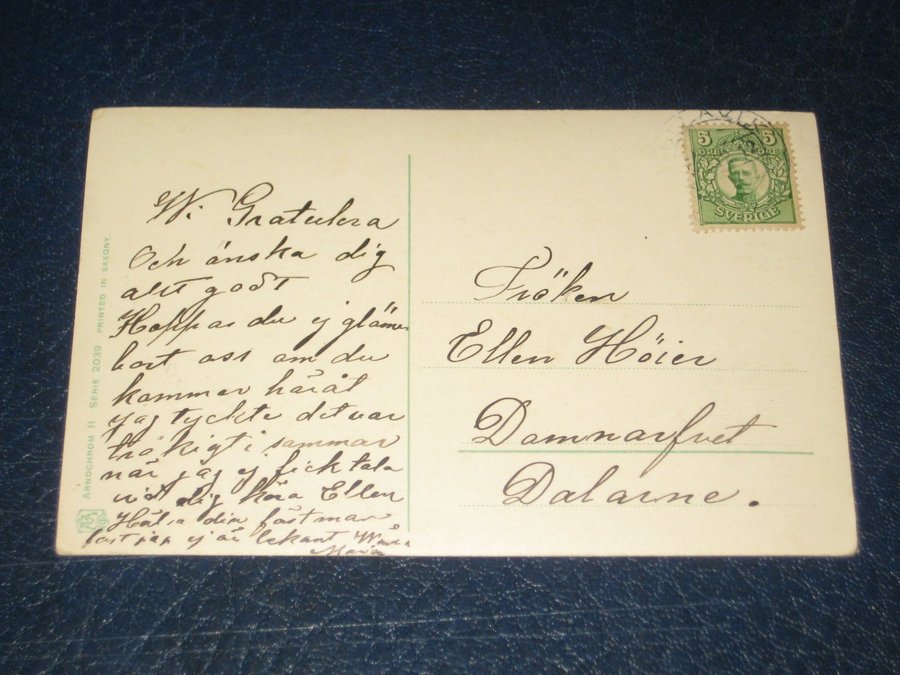 Wi Gratulera
Och önska dig
allt godt
Hoppas du ej glömer
bort oss om du
kommer häråt
jag tyckte det var
tråkigt i sommar
när jag ej fick tala
vid dig kära Ellen
Hälsa din fästman
fast jag ej är bekant
Maria
Fröken
Ellen Höier
Domnarfvet
Dalarne.
5 5
ÖRE ÖRE
SVERIGE
ARNOCHROM II SERIE 2039 PRINTED IN SAXONY